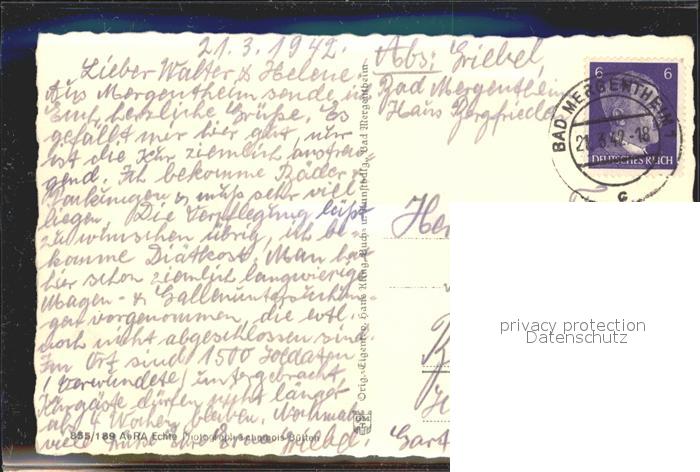 21.3.1942.
Lieber Walter & Helene
Aus Mergentheim sende ich
Euch herzliche Grüße. Es
gefällt mir hier gut nur
ist die Kur ziemlich anstren
gend. Ich bekomme Bäder,
Packungen & muß sehr viel
liegen. Die Verpflegung läßt
zu wünschen übrig, ich be-
komme Diätkost. Man hat
hier schon ziemlich langwierige
Magen- & Gallenuntersuchun
gen vorgenommen, die evtl.
noch nicht abgeschlossen sind.
Im Ort sind 1500 Soldaten
(Verwundete) untergebracht
Kurgäste dürfen nicht länger
als 4 Wochen bleiben. Nochmals
viele Grüße Ihre Erna Griebel.
855/189 AeRA Echte Photographie Chamois-Bütten
Orig.-Eigentum Hans Kling, Buch- u. Kunsthdlg., Bad Mergentheim
Abs: Griebel,
Bad Mergentheim
Haus Bergfrieden
6 6
DEUTSCHES REICH
BAD MERGENTHEIM 1
21.3.42.-18
c
privacy protection
Datenschutz
Gart